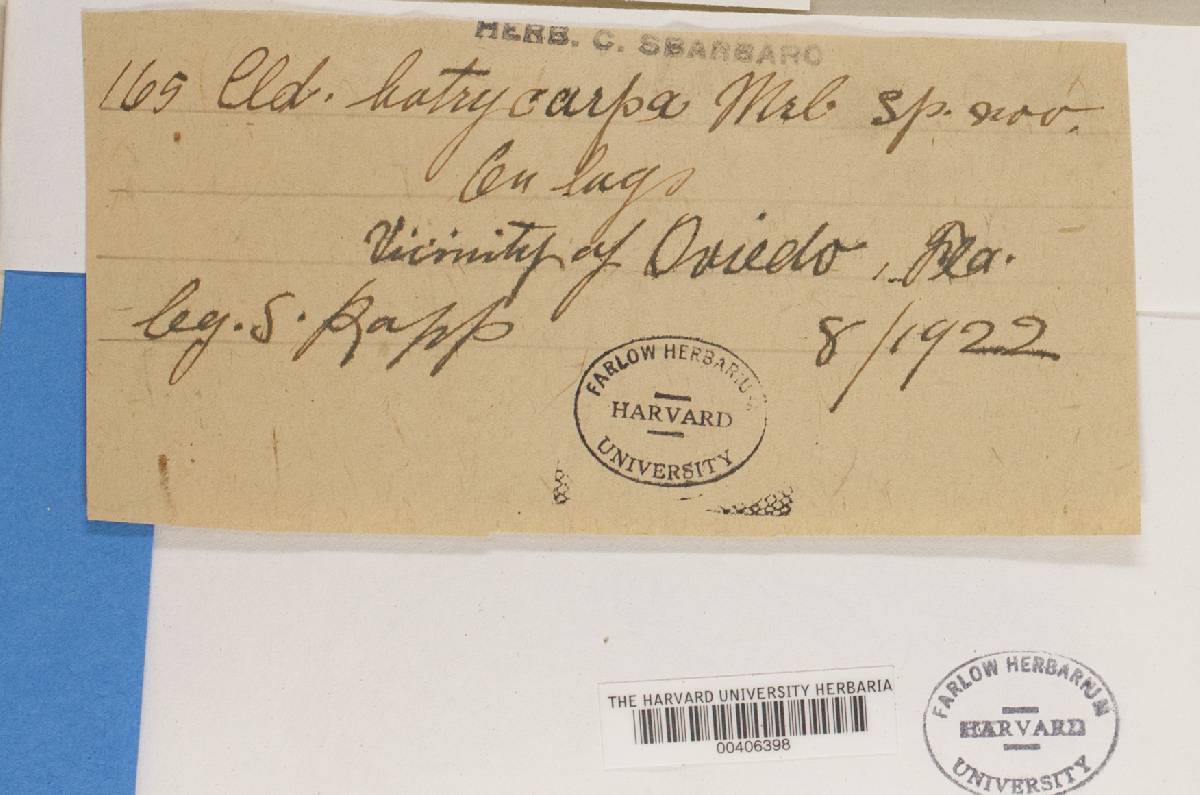 HERB. C. SBARBARO
165 Cld. botrycarpa Mrl. sp. nov.
On logs
Vicinity of Oviedo, Fla.
leg. S. Rapp 8/1922
FARLOW HERBARIUM
HARVARD
UNIVERSITY
THE HARVARD UNIVERSITY HERBARIA
00406398
FARLOW HERBARIUM
HARVARD
UNIVERSITY